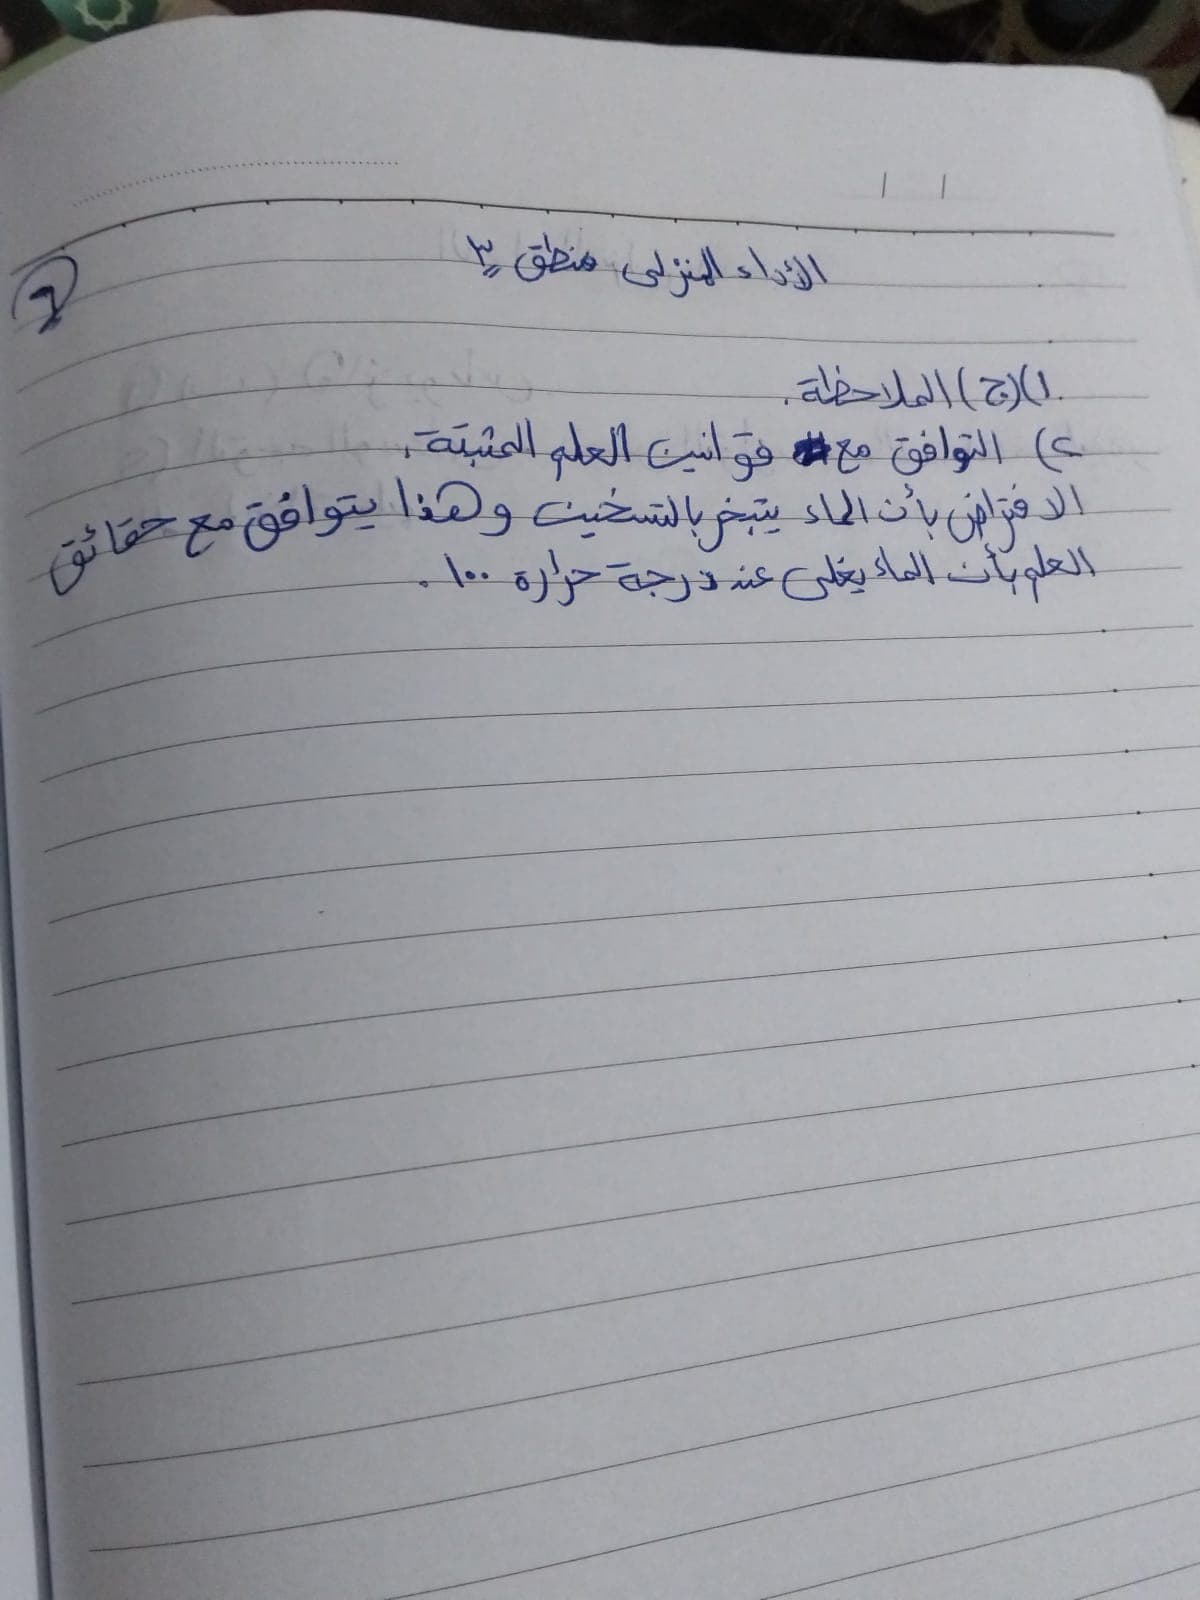 الأداء المنزلى منطق ٣
١)(ج) الملاحظة.
٢) التوافق مع قوانين العلم المثبتة.
الافتراض بأن الماء يتبخر بالتسخين وهذا يتوافق مع حقائق
العلم بأن الماء يغلى عند درجة حرارة ١٠٠.